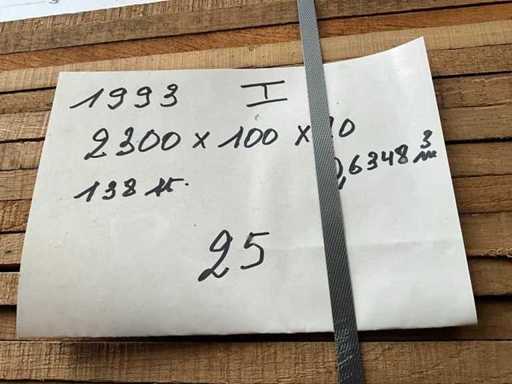 1993 I
2300 x 100 x 20
138 0,6348 m³
25